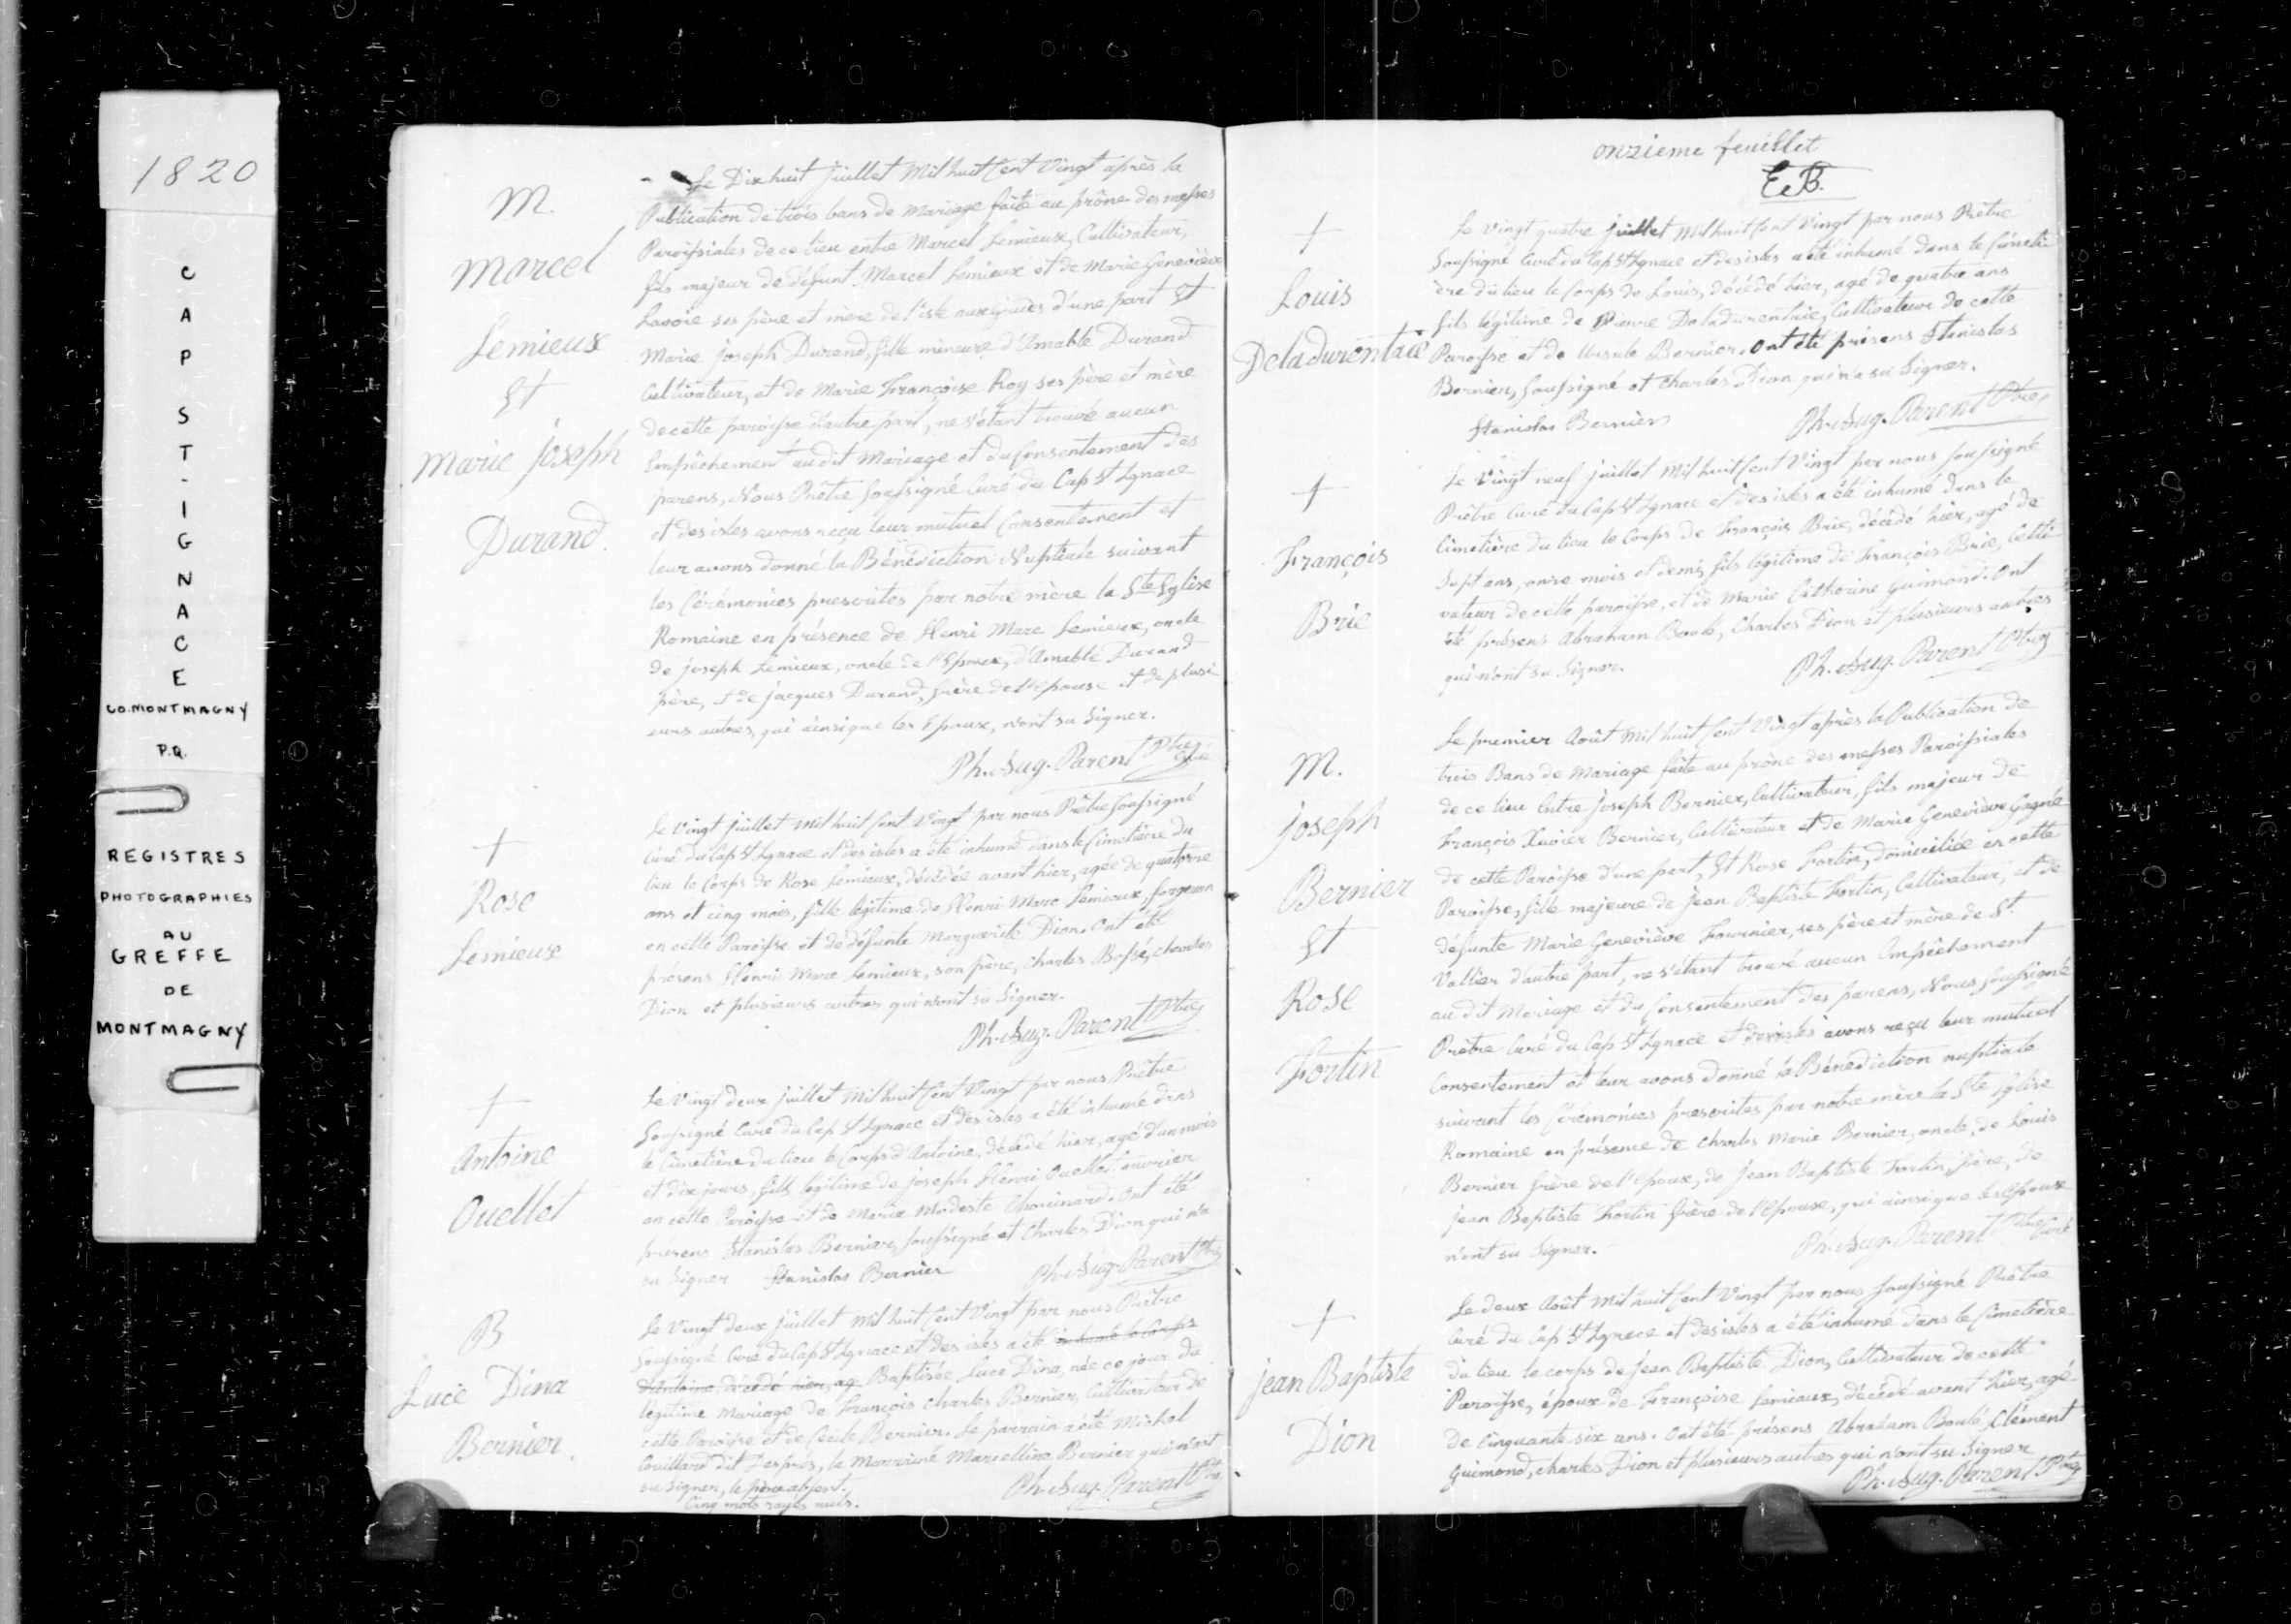 1820
CAP ST-IGNACE
CO. MONTMAGNY
P.Q.
REGISTRES
PHOTOGRAPHIES
AU
GREFFE
DE
MONTMAGNY
M.
Marcel
Lemieux
Et
Marie Joseph
Durand.
Le Dix huit juillet Mil huit Cent Vingt après la
Publication de trois bans de Mariage faite au prône des messes
Paroissiales de ce lieu entre Marcel Lemieux, Cultivateur,
fils majeur de défunt Marcel Lemieux et de Marie Geneviève
Lavoie ses père et mère de l'isle aux grues d'une part Et
Marie Joseph Durand, fille mineure d'Amable Durand
Cultivateur, et de Marie Françoise Roy ses père et mère
de cette paroisse d'autre part, ne s'étant trouvé aucun
Empêchement au dit Mariage et du Consentement des
parens, Nous Prêtre Soussigné Curé du Cap St Ignace
et des isles avons reçu leur mutuel Consentement et
leur avons donné la Bénédiction Nuptiale suivant
les Cérémonies prescrites par notre mère la Ste Eglise
Romaine en présence de Henri Marc Lemieux, oncle
de Joseph Lemieux, oncle de l'Epoux, d'Amable Durand
père, et de Jacques Durand, frère de l'épouse et de plusi
eurs autres, qui ainsi que les Epoux, n'ont su Signer.
Ph. Aug. Parent Ptre Curé
+
Rose
Lemieux
Le Vingt juillet Mil huit Cent Vingt par nous Prêtre Soussigné
Curé du Cap St Ignace et des isles a été inhumé dans le Cimetière du
lieu le Corps de Rose Lemieux, décédée avant hier, agée de quatorze
ans et cinq mois, fille légitime de Henri Marc Lemieux, forgeron
en cette Paroisse et de défunte Marguerite Dion. Ont été
présens Henri Marc Lemieux, son père, Charles Bossé, Charles
Dion et plusieurs autres qui n'ont su Signer.
Ph. Aug. Parent Ptre
+
Antoine
Ouellet
Le Vingt deux juillet Mil huit Cent Vingt par nous Prêtre
Soussigné Curé du Cap St Ignace et des isles a été inhumé dans
le Cimetière du lieu le Corps d'Antoine, décédé hier, agé d'un mois
et dix jours, fils légitime de Joseph Henri Ouellet, ouvrier
en cette Paroisse et de Marie Modeste Chouinard. Ont été
présens Stanislas Bernier, soussigné et Charles Dion qui n'a
su Signer Stanislas Bernier Ph. Aug. Parent Ptre
B
Luce Dina
Bernier.
Le Vingt deux juillet Mil huit Cent Vingt par nous Prêtre
Soussigné Curé du Cap St Ignace et des isles a été inhumé le Corps
d'Antoine, décédé hier, agé Baptisée Luce Dina, née ce jour du
légitime Mariage de François Charles Bernier, Cultivateur de
cette Paroisse et de Cecile Bernier. Le parrain a été Michel
Couillard dit Despres, la Marraine Marcelline Bernier qui n'ont
su Signer, le père absent.
Cinq mots rayés nuls. Ph. Aug. Parent Ptre
onzieme feuillet
E.B.
+
Louis
Deladurentaie
Le Vingt quatre juillet Mil huit Cent Vingt par nous Prêtre
Soussigné Curé du Cap St Ignace et des isles a été inhumé dans le Cimeti
ère du lieu le Corps de Louis, décédé hier, agé de quatre ans
fils légitime de Pierre Deladurentaie, Cultivateur de cette
Paroisse et de Ursule Bernier. Ont été présens Stanislas
Bernier, Soussigné et Charles Dion qui n'a su Signer.
Stanislas Bernier Ph. Aug. Parent Ptre
+
François
Brie
Le Vingt neuf juillet Mil huit Cent Vingt par nous Soussigné
Prêtre Curé du Cap St Ignace et des isles a été inhumé dans le
Cimetière du lieu le Corps de François Brie, décédé hier, agé de
Sept ans, onze mois et demi, fils légitime de François Brie, Culti
vateur de cette paroisse, et de Marie Catherine Guimond. Ont
été présens Abraham Boulé, Charles Dion et plusieurs autres
qui n'ont su Signer. Ph. Aug. Parent Ptre
M.
Joseph
Bernier
Et
Rose
Fortin
Le premier Août Mil huit Cent Vingt après la Publication de
trois Bans de Mariage faite au prône des messes Paroissiales
de ce lieu Entre Joseph Bernier, Cultivateur, fils majeur de
François Xavier Bernier, Cultivateur et de Marie Geneviève Gagné
de cette Paroisse d'une part, Et Rose Fortin, domiciliée en cette
Paroisse, fille majeure de Jean Baptiste Fortin, Cultivateur, et de
défunte Marie Geneviève Fournier, ses père et mère de St.
Vallier d'autre part, ne s'étant trouvé aucun Empêchement
au dit Mariage et du Consentement des parens, Nous Soussigné
Prêtre Curé du Cap St Ignace et des isles avons reçu leur mutuel
Consentement et leur avons donné la Bénédiction nuptiale
suivant les Cérémonies prescrites par notre mère la Ste Eglise
Romaine en présence de Charles Marie Bernier, oncle, de Louis
Bernier frère de l'Epoux, de Jean Baptiste Fortin, père, de
Jean Baptiste Fortin frère de l'Epouse, qui ainsi que les Epoux
n'ont su Signer. Ph. Aug. Parent Ptre Curé
+
Jean Baptiste
Dion
Le deux Août Mil huit Cent Vingt par nous Soussigné Prêtre
Curé du Cap St Ignace et des isles a été inhumé dans le Cimetière
du lieu le corps de Jean Baptiste Dion, Cultivateur de cette
Paroisse, époux de Françoise Lemieux, décédé avant hier, agé
de Cinquante six ans. Ont été présens Abraham Boulé, Clément
Guimond, Charles Dion et plusieurs autres qui n'ont su Signer
Ph. Aug. Parent Ptre